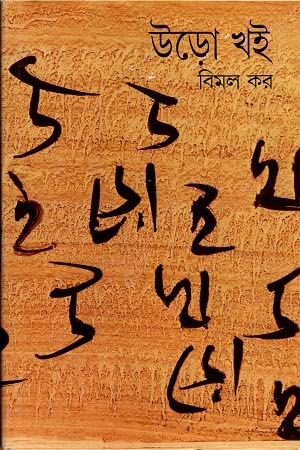 উড়ো খই
বিমল কর
উ ড
ই ড়ো ই খ
উ উ খ ড
ড়ো